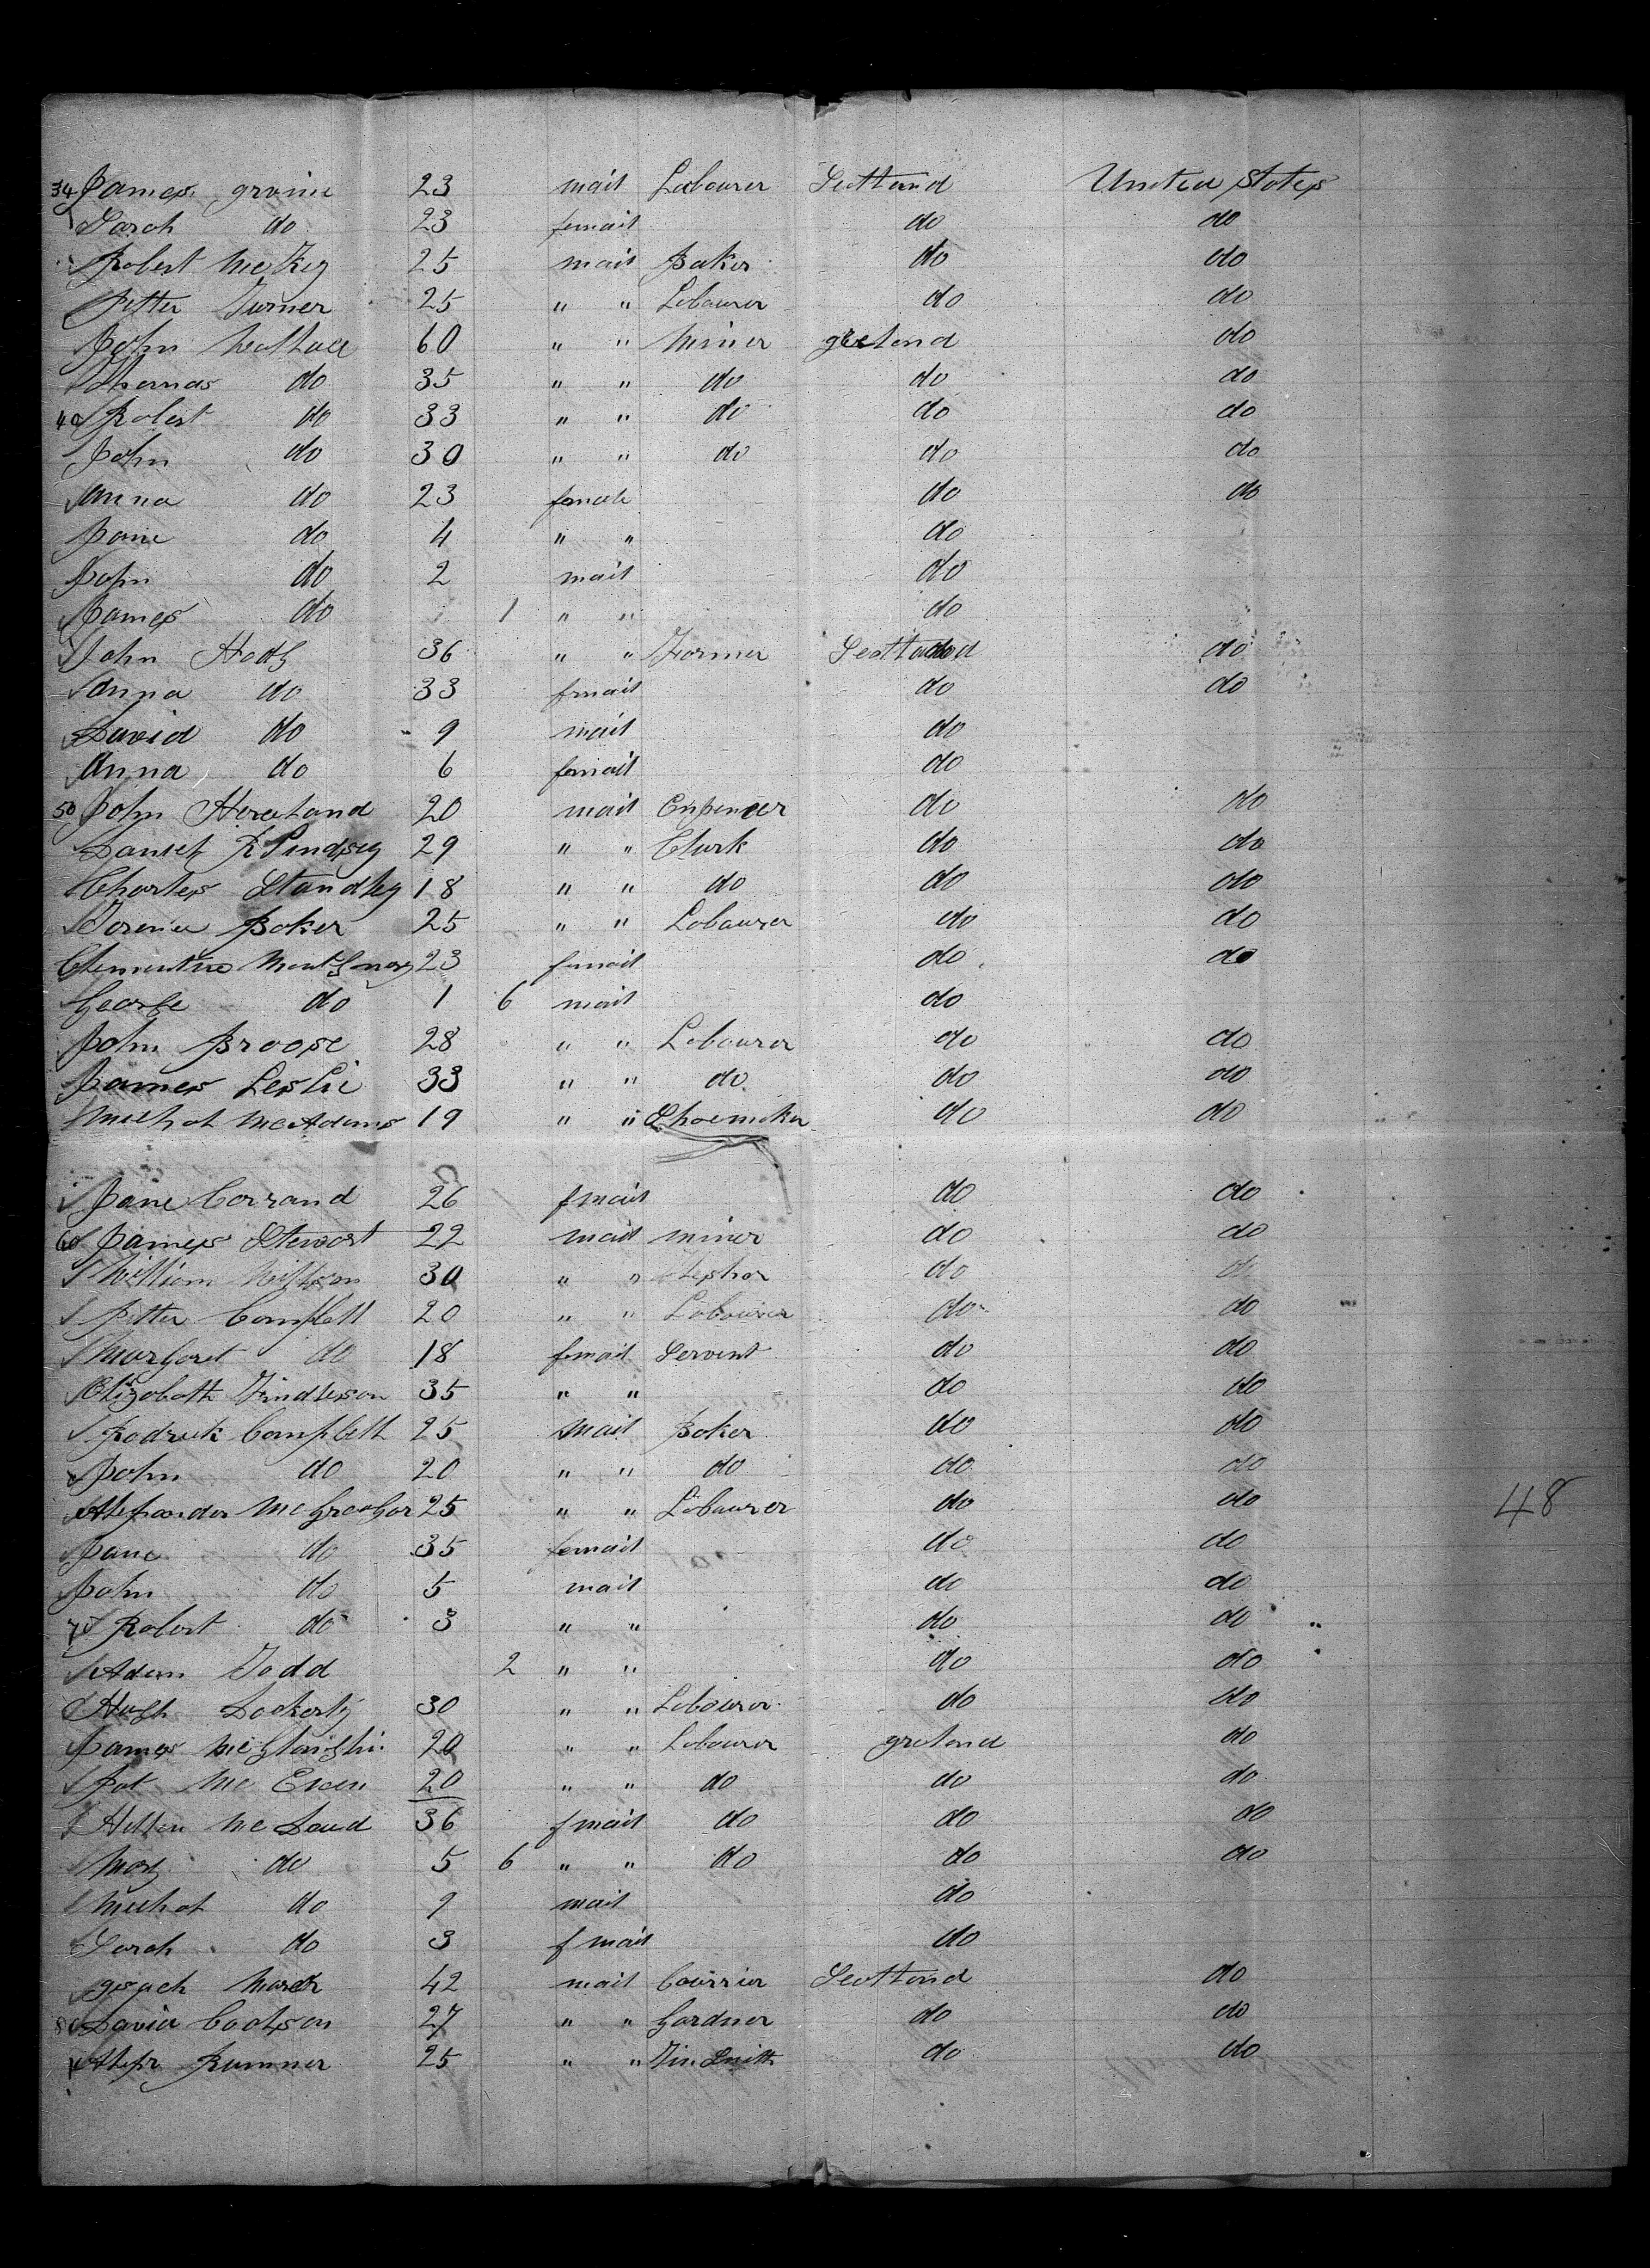 34 James grvine 23 mail Labourer Scotland United States
Sarah do 23 femail do do
Robert McKey 25 mail Baker do do
Petter Turner 25 " " Labourer do do
John Wallace 60 " " Miner greland do
Thomas do 35 " " do do do
40 Robert do 33 " " do do do
John do 30 " " do do do
Anna do 23 female do do
Jane do 4 " " do
John do 2 mail do
James do 1 " " do
John Hody 36 " " Farmer Scotland do
Anna do 33 fmail do do
David do 9 mail do
Anna do 6 femail do
50 John 20 mail do do
Daniel R Lindsey 29 " " Clurk do do
Charles Standley 18 " " do do do
Baker 25 " " Labourer do do
Clementine 23 femail do do
George do 1 6 mail do
John Broose 28 " " Labourer do do
James Leslie 33 " " do do do
Michal McAdams 19 " " Shoemaker do do
Jane Corrand 26 fmail do do
60 James Stewart 22 mail miner do do
William 30 " " do do
Petter Campbell 20 " " Labourer do do
Margaret do 18 femail Servent do do
Elizabath Findleson 35 " " do do
Rodrick Campbell 25 mail Baker do do
John do 20 " " do do do
Alexander McGreagor 25 " " Labourer do do 48
Jane do 35 femail do do
John do 5 mail do do
70 Robert do 3 " " do do
Adam Todd 2 " " do do
Hugh Dockerty 30 " " Labourer do do
James McGlaughlin 20 " " Labourer greland do
Pat Mc Ewen 20 " " do do do
Hellen McDaud 36 fmail do do do
Mary do 5 6 " " do do do
Michal do 9 mail do
Sarah do 3 f mail do
42 mail Courrier Scotland do
80 David Cootson 27 " " Gardner do do
Alexr Rumner 25 " " Tin Smith do do